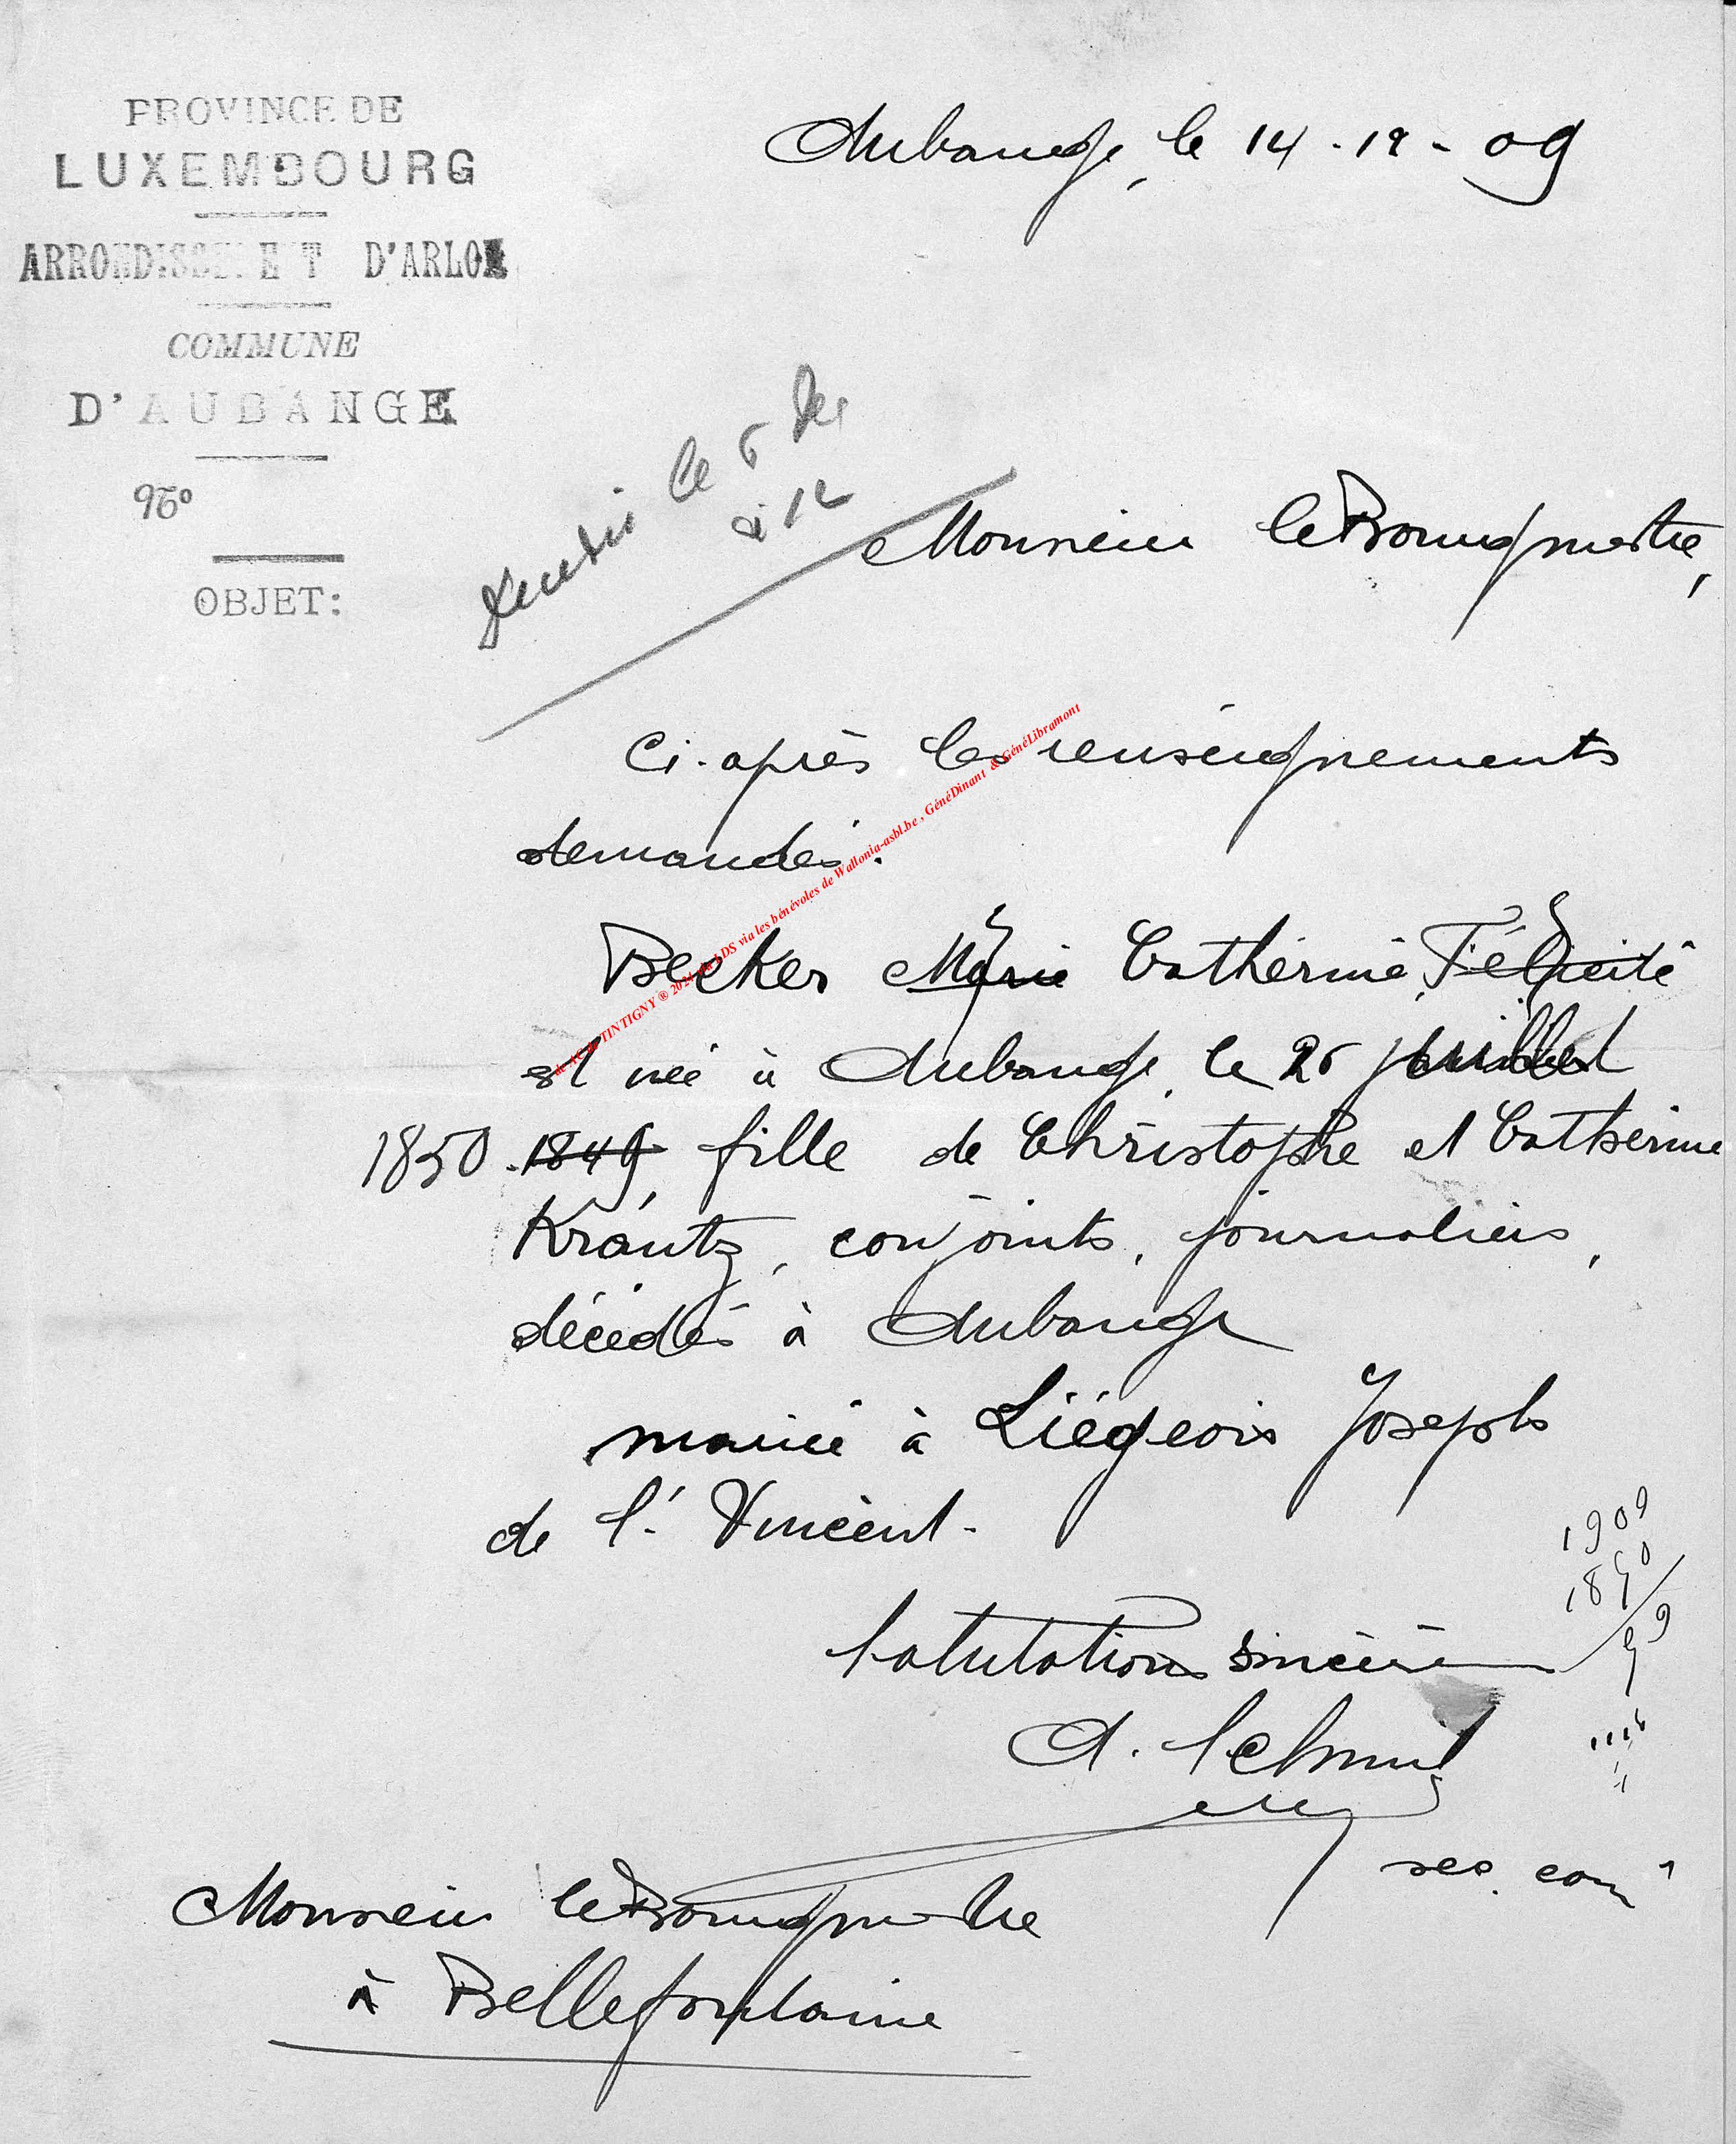 PROVINCE DE
LUXEMBOURG
ARRONDISSEMENT D'ARLON
COMMUNE
D'AUBANGE
No
OBJET:
Aubange, le 14-12-09
le 5
à 12
Monsieur le Bourgmestre,
Ci-après les renseignements
demandés.
Becker Marie Catherine, Félicité
est née à Aubange, le 26 juillet
1850. 1849, fille de Christophe et Catherine
Krantz, conjoints, journaliers,
décédés à Aubange
mariée à Liégeois Joseph
de St Vincent.
Salutations sincères
1909
1850
59
A. Schmit
sec. com
Monsieur le Bourgmestre
à Bellefontaine
TINTIGNY ® 2024 LDS via les bénévoles de Wallonia-asbl.be, GénéDinant & GénéLibramont